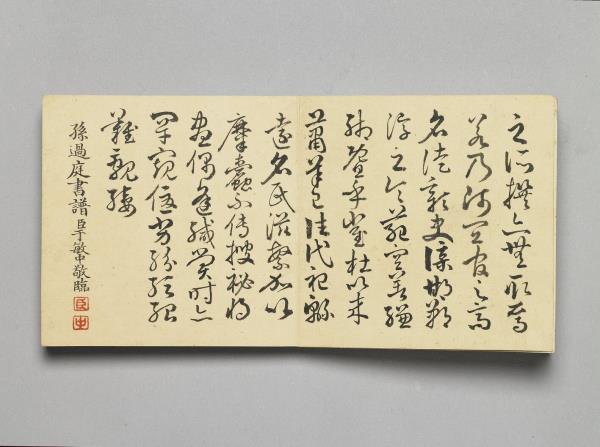 之所撰亦無取焉
若乃師宜官之高
名徒彰史牒邯鄲
淳之令範空著縑
緗暨乎崔杜以來
蕭羊已往代祀緜
遠名氏滋繁加以
糜蠹不傳搜祕將
盡偶逢緘賞時亦
罕窺優劣紛紜殆
難覼縷
孫過庭書譜 臣于敏中敬臨
臣
中